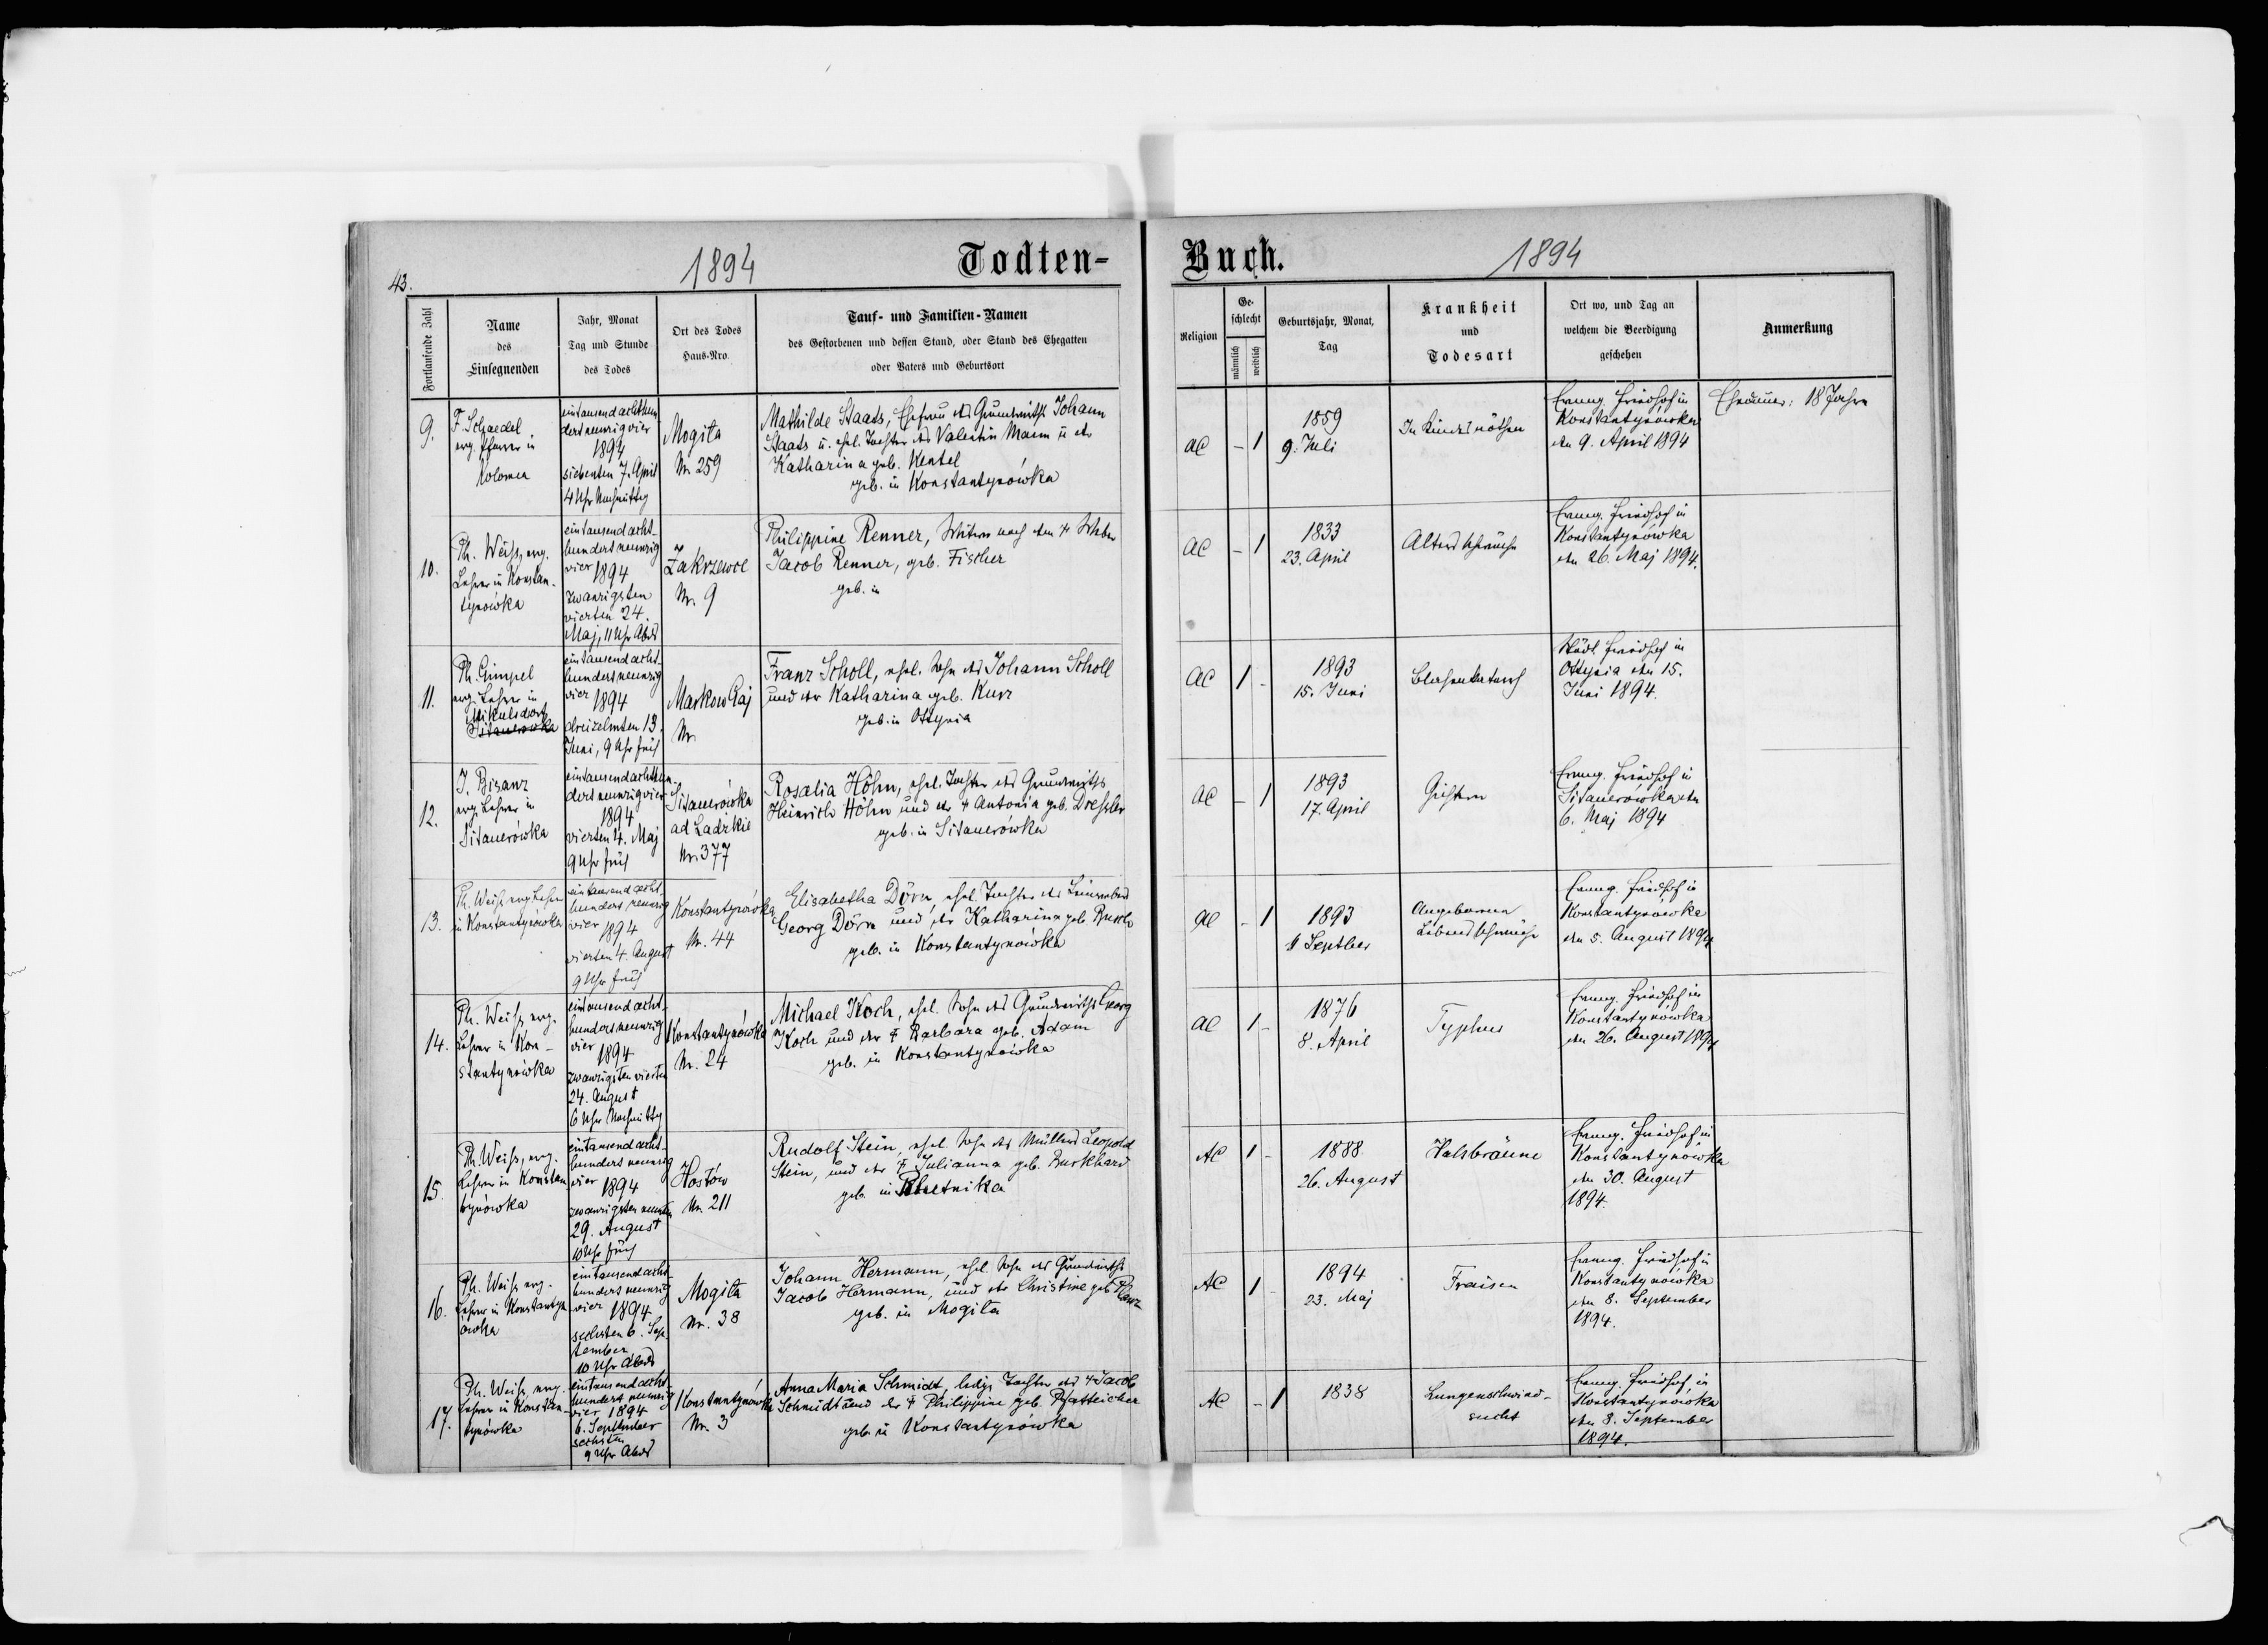 43.
1894
Todten-
Buch.
1894
Fortlaufende Zahl
Name
des
Einsegnenden
Jahr, Monat
Tag und Stunde
des Todes
Ort des Todes
Haus-Nro.
Tauf- und Familien-Namen
des Gestorbenen und dessen Stand, oder Stand des Ehegatten
oder Vaters und Geburtsort
Religion
Ge-
schlecht
männlich
weiblich
Geburtsjahr, Monat,
Tag
Krankheit
und
Todesart
Ort wo, und Tag an
welchem die Beerdigung
geschehen
Anmerkung
9.
F. Schaedel
evg. Pfarrer in
Kolomea
eintausend achthun
dertneunzigvier
1894
siebenten 7. April
4 Uhr Nachmittg
Mogiła
Nr. 259
Mathilde Staads, Ehefrau des Grundwirths Johann
Staads u. ehel. Tochter des Valentin Mann u. der
Katharina geb. Kentel
geb. in Konstantynówka
AC
- 1
1859
9. Juli
In Kindesnöthen
Evang. Friedhof in
Konstantynówka
den 9. April 1894
Ehedauer: 18 Jahre
10.
Ph. Weiß, evg.
Lehrer in Konstan-
tynówka
eintausend acht-
hundert neunzig
vier 1894
zwanzigsten
vierten 24.
Maj, 11 Uhr Abds
Zakrzewce
Nr. 9
Philippine Renner, Witwe nach dem † Weber
Jacob Renner, geb. Fischer
geb. in
AC
- 1
1833
23. April
Altersschwäche
Evang. Friedhof in
Konstantynówka
den 26. Maj 1894.
11.
Ph. Gimpel
evg. Lehrer in
Mikulsdorf
eintausend acht-
hundert neunzig
vier 1894
dreizehnten 13.
Juni, 9 Uhr früh
Markow Gaj
Nr.
Franz Scholl, ehel. Sohn des Johann Scholl
und der Katharina geb. Kurz
geb. in Ottynia
AC
1 -
1893
15. Juni
Städt. Friedhof in
Ottynia den 15.
Juni 1894.
12.
J. Bisanz
evg. Lehrer in
Sitauerówka
eintausend achthun-
dert neunzigvier
1894
vierten 4. Maj
9 Uhr früh
Sitauerówka
ad Ladzkie
Nr. 377
Rosalia Höhn, ehel. Tochter des Grundwirths
Heinrich Höhn und der † Antonia geb. Dreßler
geb. in Sitauerówka
AC
- 1
1893
17. April
Evang. Friedhof in
Sitauerówka den
6. Maj 1894
13.
Ph. Weiß evg Lehrer
in Konstantynówka
eintausend acht-
hundert neunzig
vier
1894
vierten 4. August
9 Uhr früh
Konstantynówka
Nr. 44
Elisabetha Dörn, ehel. Tochter des Leinwebers
Georg Dörn und der Katharina geb. Busch
geb. in Konstantynówka
AC
- 1
1893
September
Angeborene
Lebensschwäche
Evang. Friedhof in
Konstantynówka
den 5. August 1894
14.
Ph. Weiß, evg.
Lehrer in Kon-
stantynówka
eintausend acht-
hundert neunzig
vier
1894
zwanzigsten vierten
24. August
6 Uhr Nachmittg
Konstantynówka
Nr. 24
Michael Koch, ehel. Sohn des Grundwirths Georg
Koch und der † Barbara geb. Adam
geb. in Konstantynówka
AC
1 -
1876
8. April
Typhus
Evang. Friedhof in
Konstantynówka
den 26. August 1894
15.
Ph. Weiß, evg.
Lehrer in Konstan
tynówka
eintausend acht-
hundert neunzig
vier 1894
zwanzigsten neunten
29. August
10 Uhr früh
Hostów
Nr. 211
Rudolf Stein, ehel. Sohn des Müllers Leopold
Stein, und der † Julianna geb. Burkhard
geb. in
AC
1 -
1888
26. August
Halsbräune
Evang. Friedhof in
Konstantynówka
den 30. August
1894.
16.
Ph. Weiß evg.
Lehrer in Konstantyn
ówka
eintausend acht-
hundert neunzig
vier 1894
sechsten 6. Sep-
tember
10 Uhr Abds
Mogiła
Nr. 38
Johann Hermann, ehel. Sohn des Grundwirths
Jacob Hermann, und der Christine geb.
geb. in Mogiła
AC
1 -
1894
23. Maj
Fraisen
Evang. Friedhof in
Konstantynówka
den 8. September
1894.
17.
Ph. Weiß, evg.
Lehrer in Konstan-
tynówka
eintausend acht-
hundert neunzig
vier 1894
6. September
sechsten
9 Uhr Abds
Konstantynówka
Nr. 3
Anna Maria Schmidt, ledige Tochter des † Jacob
Schmidt und der † Philippine geb. Pfatteicher
geb. in Konstantynówka
AC
- 1
1838
Lungenschwind-
sucht
Evang. Friedhof in
Konstantynówka
den 8. September
1894.